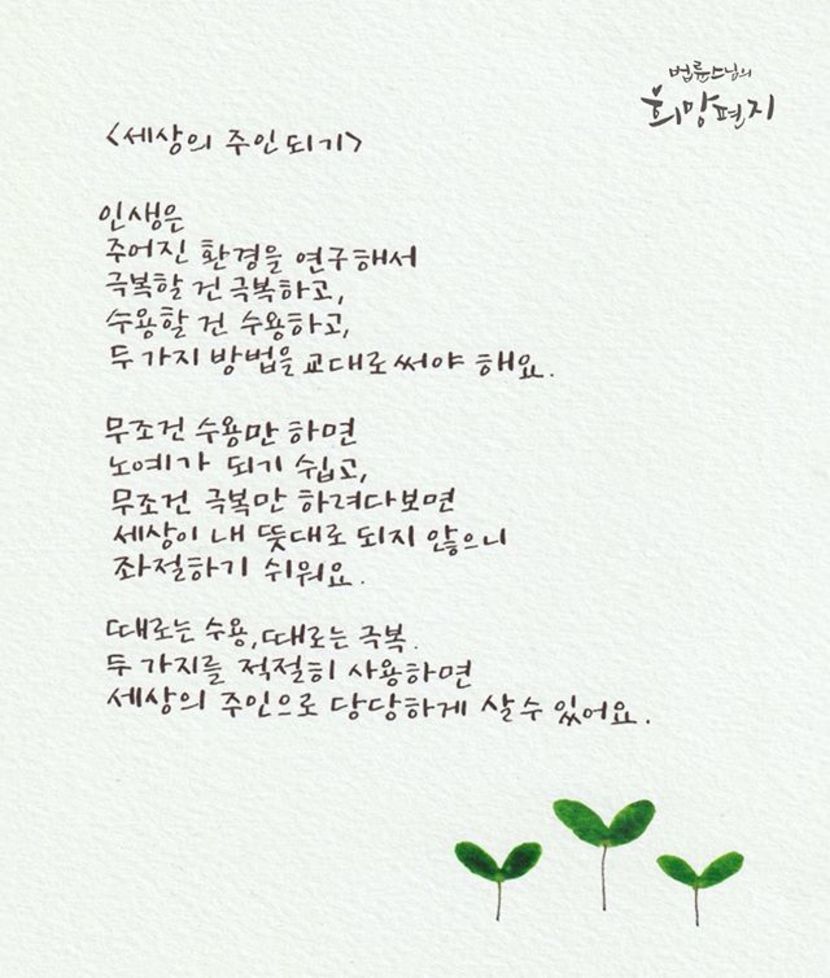 법륜스님의
희망편지
<세상의 주인되기>
인생은
주어진 환경을 연구해서
극복할 건 극복하고,
수용할 건 수용하고,
두 가지 방법을 교대로 써야 해요.
무조건 수용만 하면
노예가 되기 쉽고,
무조건 극복만 하려다보면
세상이 내 뜻대로 되지 않으니
좌절하기 쉬워요.
때로는 수용, 때로는 극복.
두 가지를 적절히 사용하면
세상의 주인으로 당당하게 살 수 있어요.